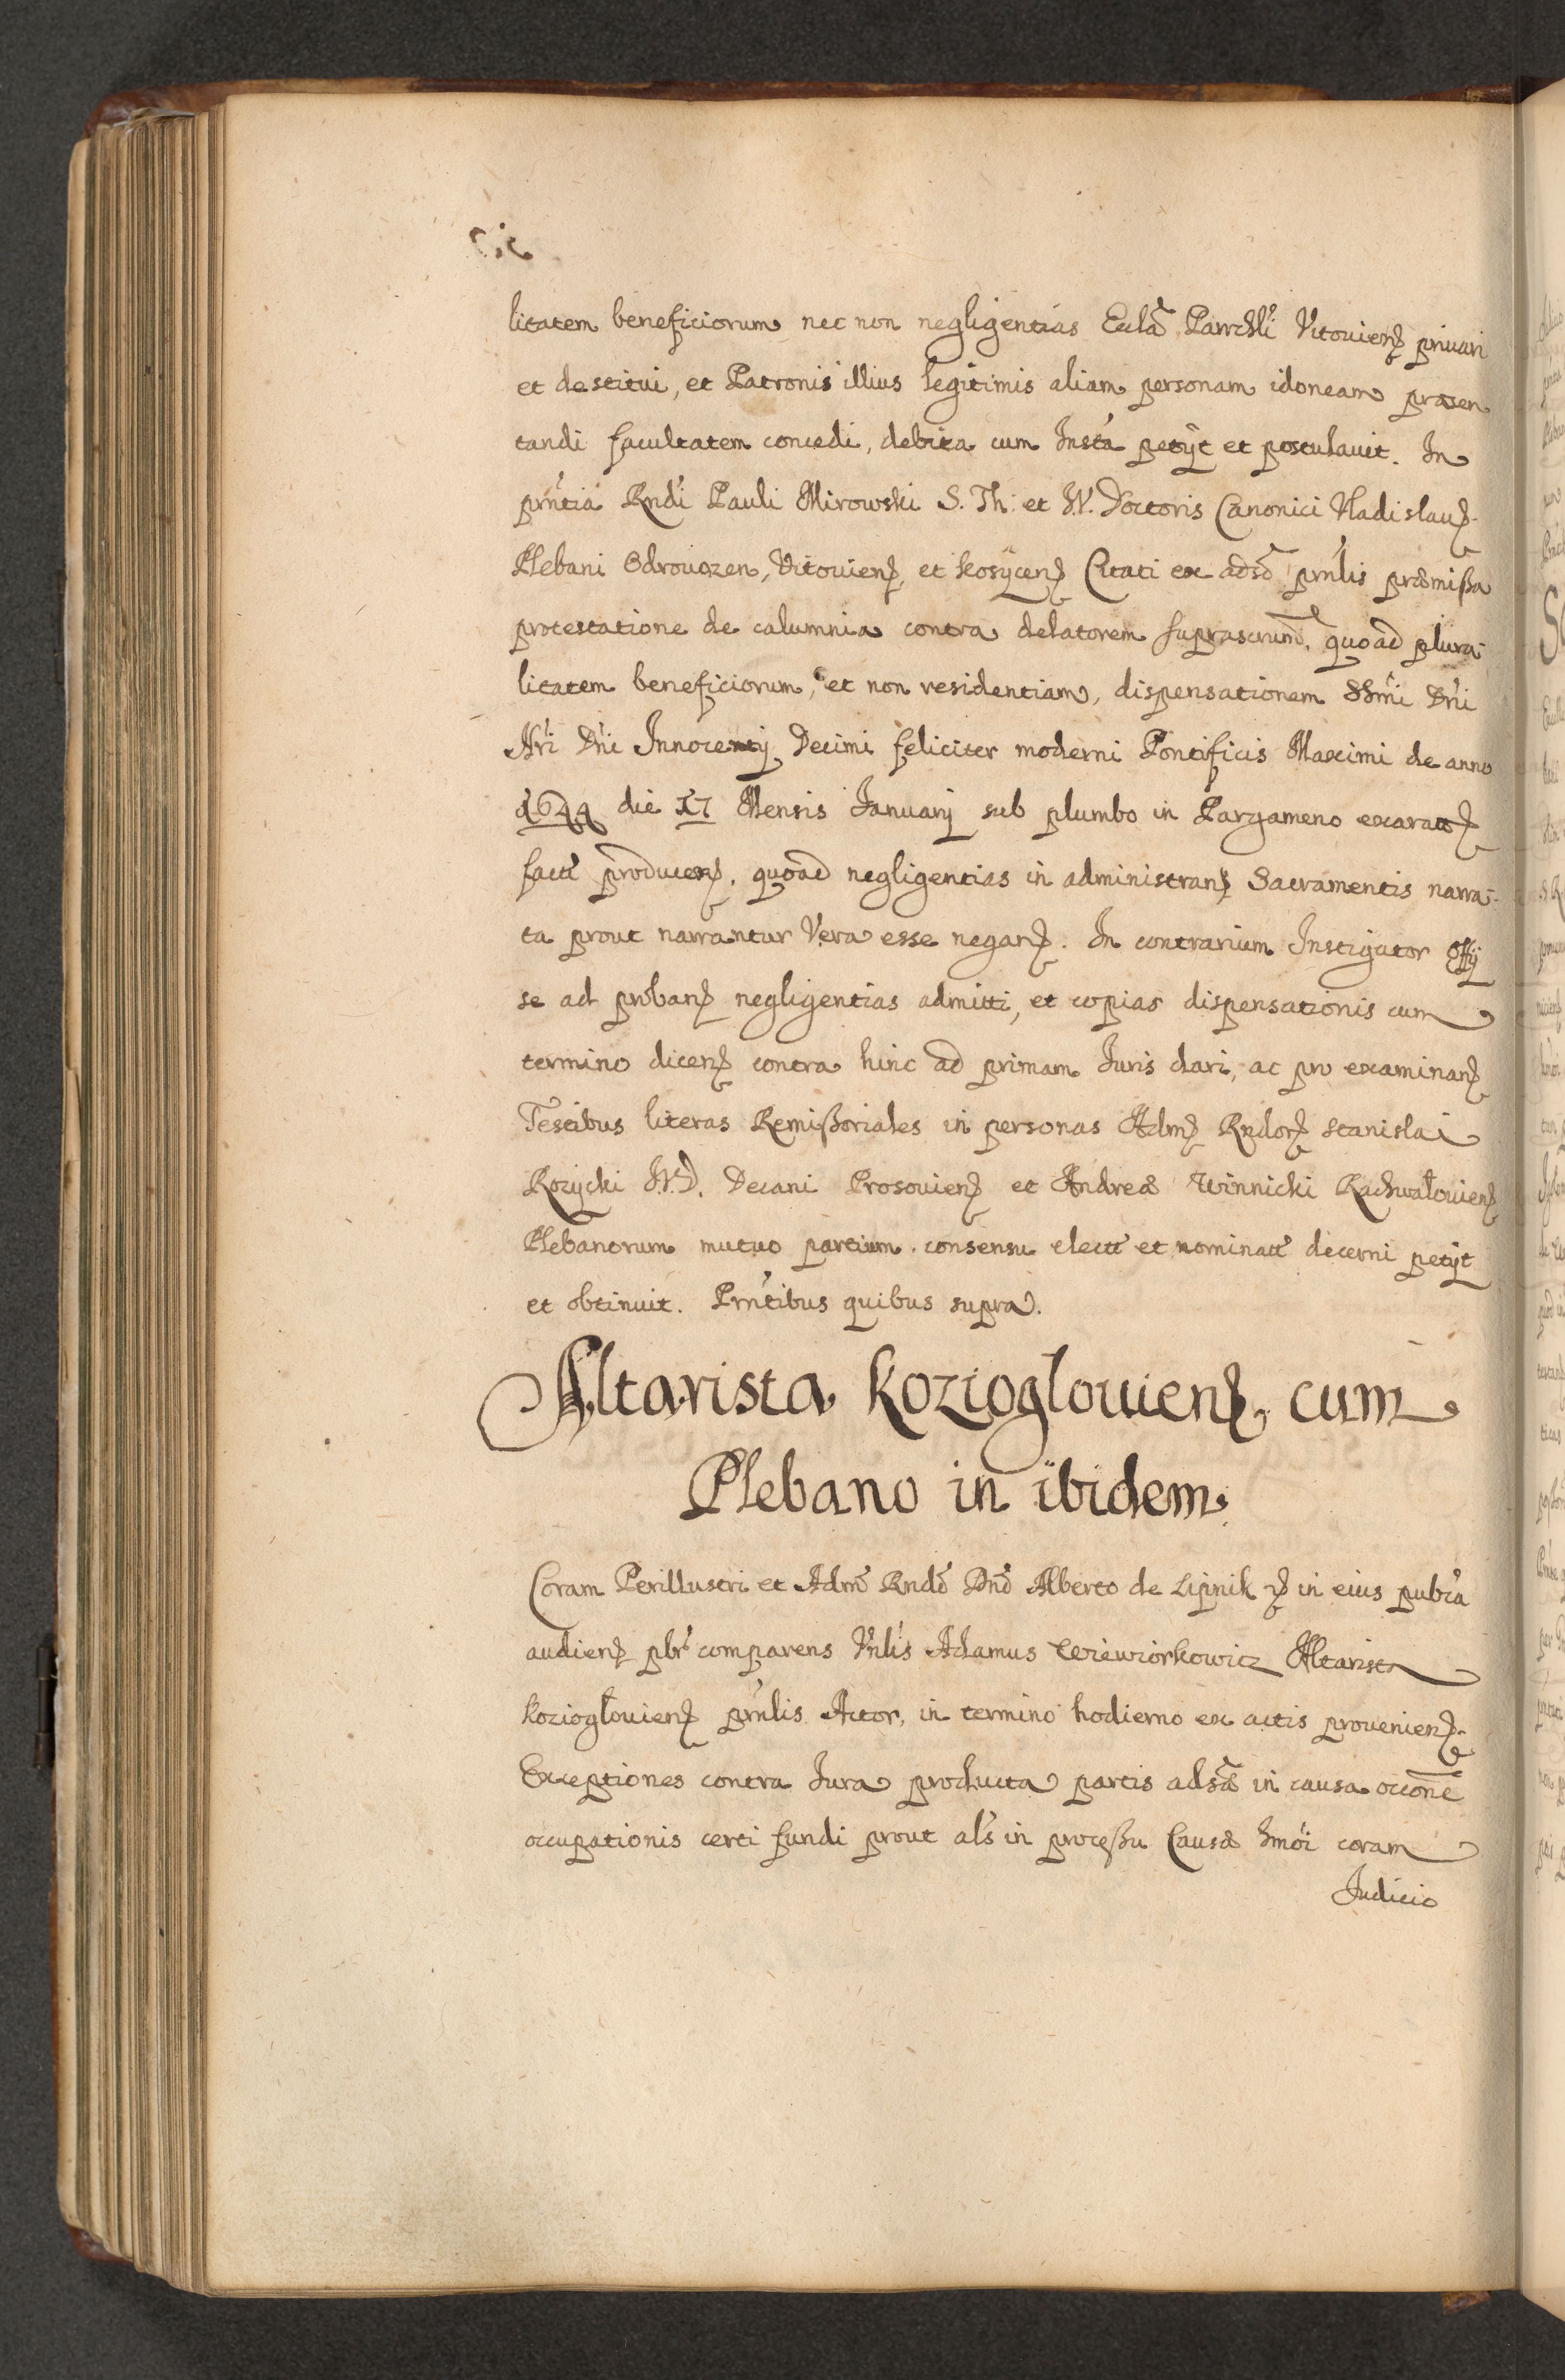 litatem beneficiorum nec non negligentias Eccla Parrchli Vitouien privari
et destitui, et Patronis illius legitimis aliam personam idoneam præsen
tandi facultatem concedi, debita cum Insta petÿt et postulavit. In
prntia Rndi Pauli Mirowski S. Th. et I.V. Doctoris Canonici Vladislau
Plebani Odrouozen, Vitouien, et Kosÿcen Citati ex adso prnlis præmißa
protestatione de calumnia contra delatorem suprascrum, quoad plura-
litatem beneficiorum, et non residentiam, dispensationem SSmi Dni
Nri Dni Innocentij Decimi feliciter moderni Pontificis Maximi de anno
die 17 Mensis Januarij sub plumbo in Pargameno exaratt
fact producen, quoad negligentias in administran Sacramentis narra-
ta prout narrantur Vera esse negan. In contrarium Instigator Offij
se ad proban negligentias admitti, et copias dispensationis cum
termino dicen contra hinc ad primam Juris dari, ac pro examinan
Testibus literas Remißoriales in personas Adm Rndor Stanislai
Rozycki I.V.D. Decani Prosouien et Andreæ Winnicki Rachwałouien
Plebanorum mutuo partium consensu elect et nominatt decerni petÿt
et obtinuit. Prntibus quibus supra.
Altarista Kozioglouien cum
Plebano in ibidem.
Coram Perillustri et Adm Rndo Dno Alberto de Lipnik in eius pubca
audien pbr comparens Vnlis Adamus Wiewiorkowicz Altarista
Koziogłouien prnlis Actor, in termino hodierno ex actis provenien
Exceptiones contra Jura producta partis adsæ in causa occone
occupationis certi fundi prout als in proceßu Causæ hmoi coram
Judicio